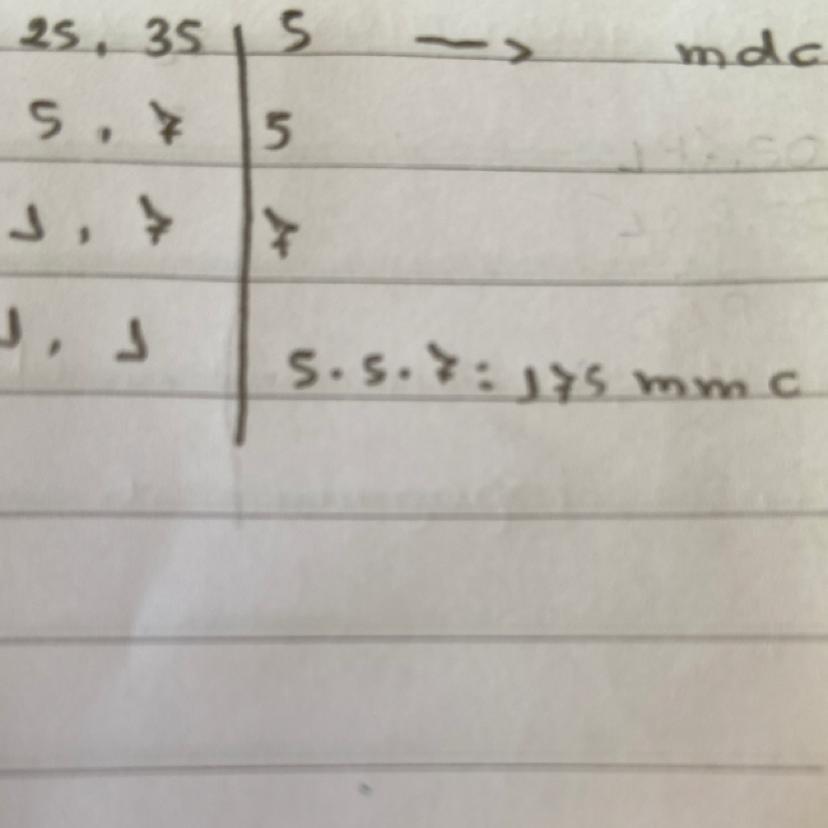 25, 35 | 5 → mdc
5, 7 | 5
1, 7 | 7
1, 1 |
5.5.7 = 175 mmc